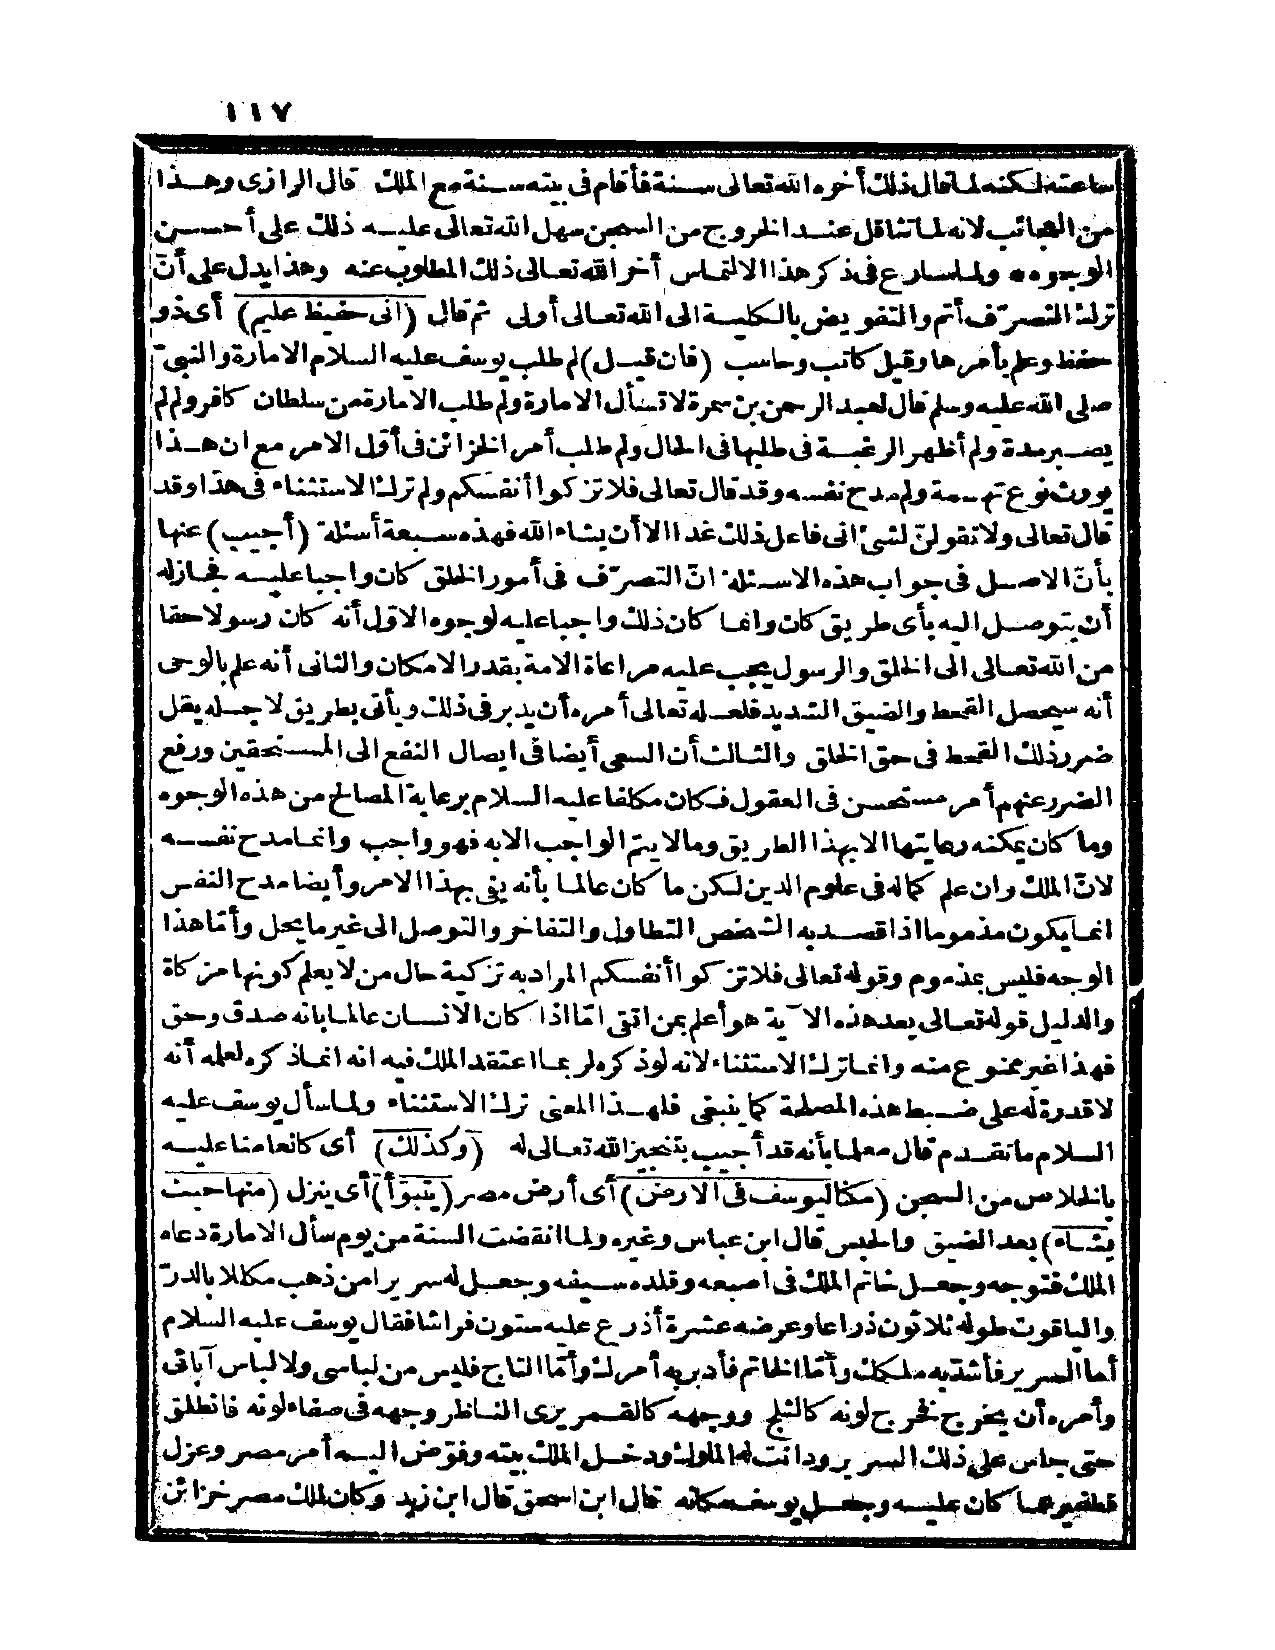 ١١٧
ساعته لكنه لما قال ذلك أخره الله تعالى سنة فأقام فى بيته سنة مع الملك قال الرازى وهذا
من العجائب لانه لما تثاقل عند الخروج من السجن سهل الله تعالى عليه ذلك على أحسن
الوجوه ولما سارع فى ذكر هذا الالتماس أخر الله تعالى ذلك المطلوب عنه وهذا يدل على أنّ
ترك التصرّف أتم والتفويض بالكلية الى الله تعالى أولى ثم قال (انى حفيظ عليم) أى ذو
حفظ وعلم بأمرها وقيل كاتب وحاسب (فان قيل) لم طلب يوسف عليه السلام الامارة والنبىّ
صلى الله عليه وسلم قال لعبد الرحمن بن سمرة لا تسأل الامارة ولم طلب الامارة من سلطان كافر ولم لم
يصبر مدة ولم أظهر الرغبة فى طلبها فى الحال ولم طلب أمر الخزائن فى أوّل الامر مع ان هذا
يورث نوع تهمة ولم مدح نفسه وقد قال تعالى فلا تزكوا أنفسكم ولم ترك الاستثناء فى هذا وقد
قال تعالى ولا تقولنّ لشئ انى فاعل ذلك غدا الا أن يشاء الله فهذه سبعة أسئلة (أجيب) عنها
بأنّ الاصل فى جواب هذه الاسئلة انّ التصرّف فى أمور الخلق كان واجبا عليه فجاز له
أن يتوصل اليه بأى طريق كان وانما كان ذلك واجبا عليه لوجوه الاوّل أنه كان رسولا حقا
من الله تعالى الى الخلق والرسول يجب عليه مراعاة الامة بقدر الامكان والثانى أنه علم بالوحى
أنه سيحصل القحط والضيق الشديد فلعله تعالى أمره أن يدبر فى ذلك ويأتى بطريق لاجله يقل
ضرر ذلك القحط فى حق الخلق والثالث أن السعى أيضا فى ايصال النفع الى المستحقين ورفع
الضرر عنهم أمر مستحسن فى العقول فكان مكلفا عليه السلام برعاية المصالح من هذه الوجوه
وما كان يمكنه رعايتها الا بهذا الطريق وما لا يتم الواجب الا به فهو واجب وانما مدح نفسه
لانّ الملك وان علم كماله فى علوم الدين لكن ما كان عالما بأنه يفى بهذا الامر وأيضا مدح النفس
انما يكون مذموما اذا قصد به الشخص التطاول والتفاخر والتوصل الى غير ما يحل وأمّا هذا
الوجه فليس بمذموم وقوله تعالى فلا تزكوا أنفسكم المراد به تزكية حال من لا يعلم كونها مزكاة
والدليل قوله تعالى بعد هذه الآية هو أعلم بمن اتقى امّا اذا كان الانسان عالما بانه صدق وحق
فهذا غير ممنوع منه وانما ترك الاستثناء لانه لو ذكره لربما اعتقد الملك فيه انه انما ذكره لعلمه أنه
لا قدرة له على ضبط هذه المصلحة كما ينبغى فلهذا المعنى ترك الاستثناء ولما سأل يوسف عليه
السلام ما تقدم قال معلما بأنه قد أجيب بتنجيز الله تعالى له (وكذلك) أى كانعامنا عليه
بالخلاص من السجن (مكنا ليوسف فى الارض) أى أرض مصر (يتبوّأ) أى ينزل (منها حيث
يشاء) بعد الضيق والحبس قال ابن عباس وغيره ولما انقضت السنة من يوم سأل الامارة دعاه
الملك فتوجه وجعل خاتم الملك فى اصبعه وقلده سيفه وجعل له سريرا من ذهب مكللا بالدرّ
والياقوت طوله ثلاثون ذراعا وعرضه عشرة أذرع عليه ستون فراشا فقال يوسف عليه السلام
أما السرير فأشد به ملكك وأمّا الخاتم فأدبر به أمرك وأمّا التاج فليس من لباسى ولا لباس آبائى
وأمره أن يخرج فخرج لونه كالثلج ووجهه كالقمر يرى الناظر وجهه فى صفاء لونه فانطلق
حتى جلس على ذلك السرير ودانت له الملوك ودخل الملك بيته وفوّض اليه أمر مصر وعزل
قطفير عما كان عليه وجعل يوسف مكانه قال ابن اسحق قال ابن زيد وكان لملك مصر خزائن